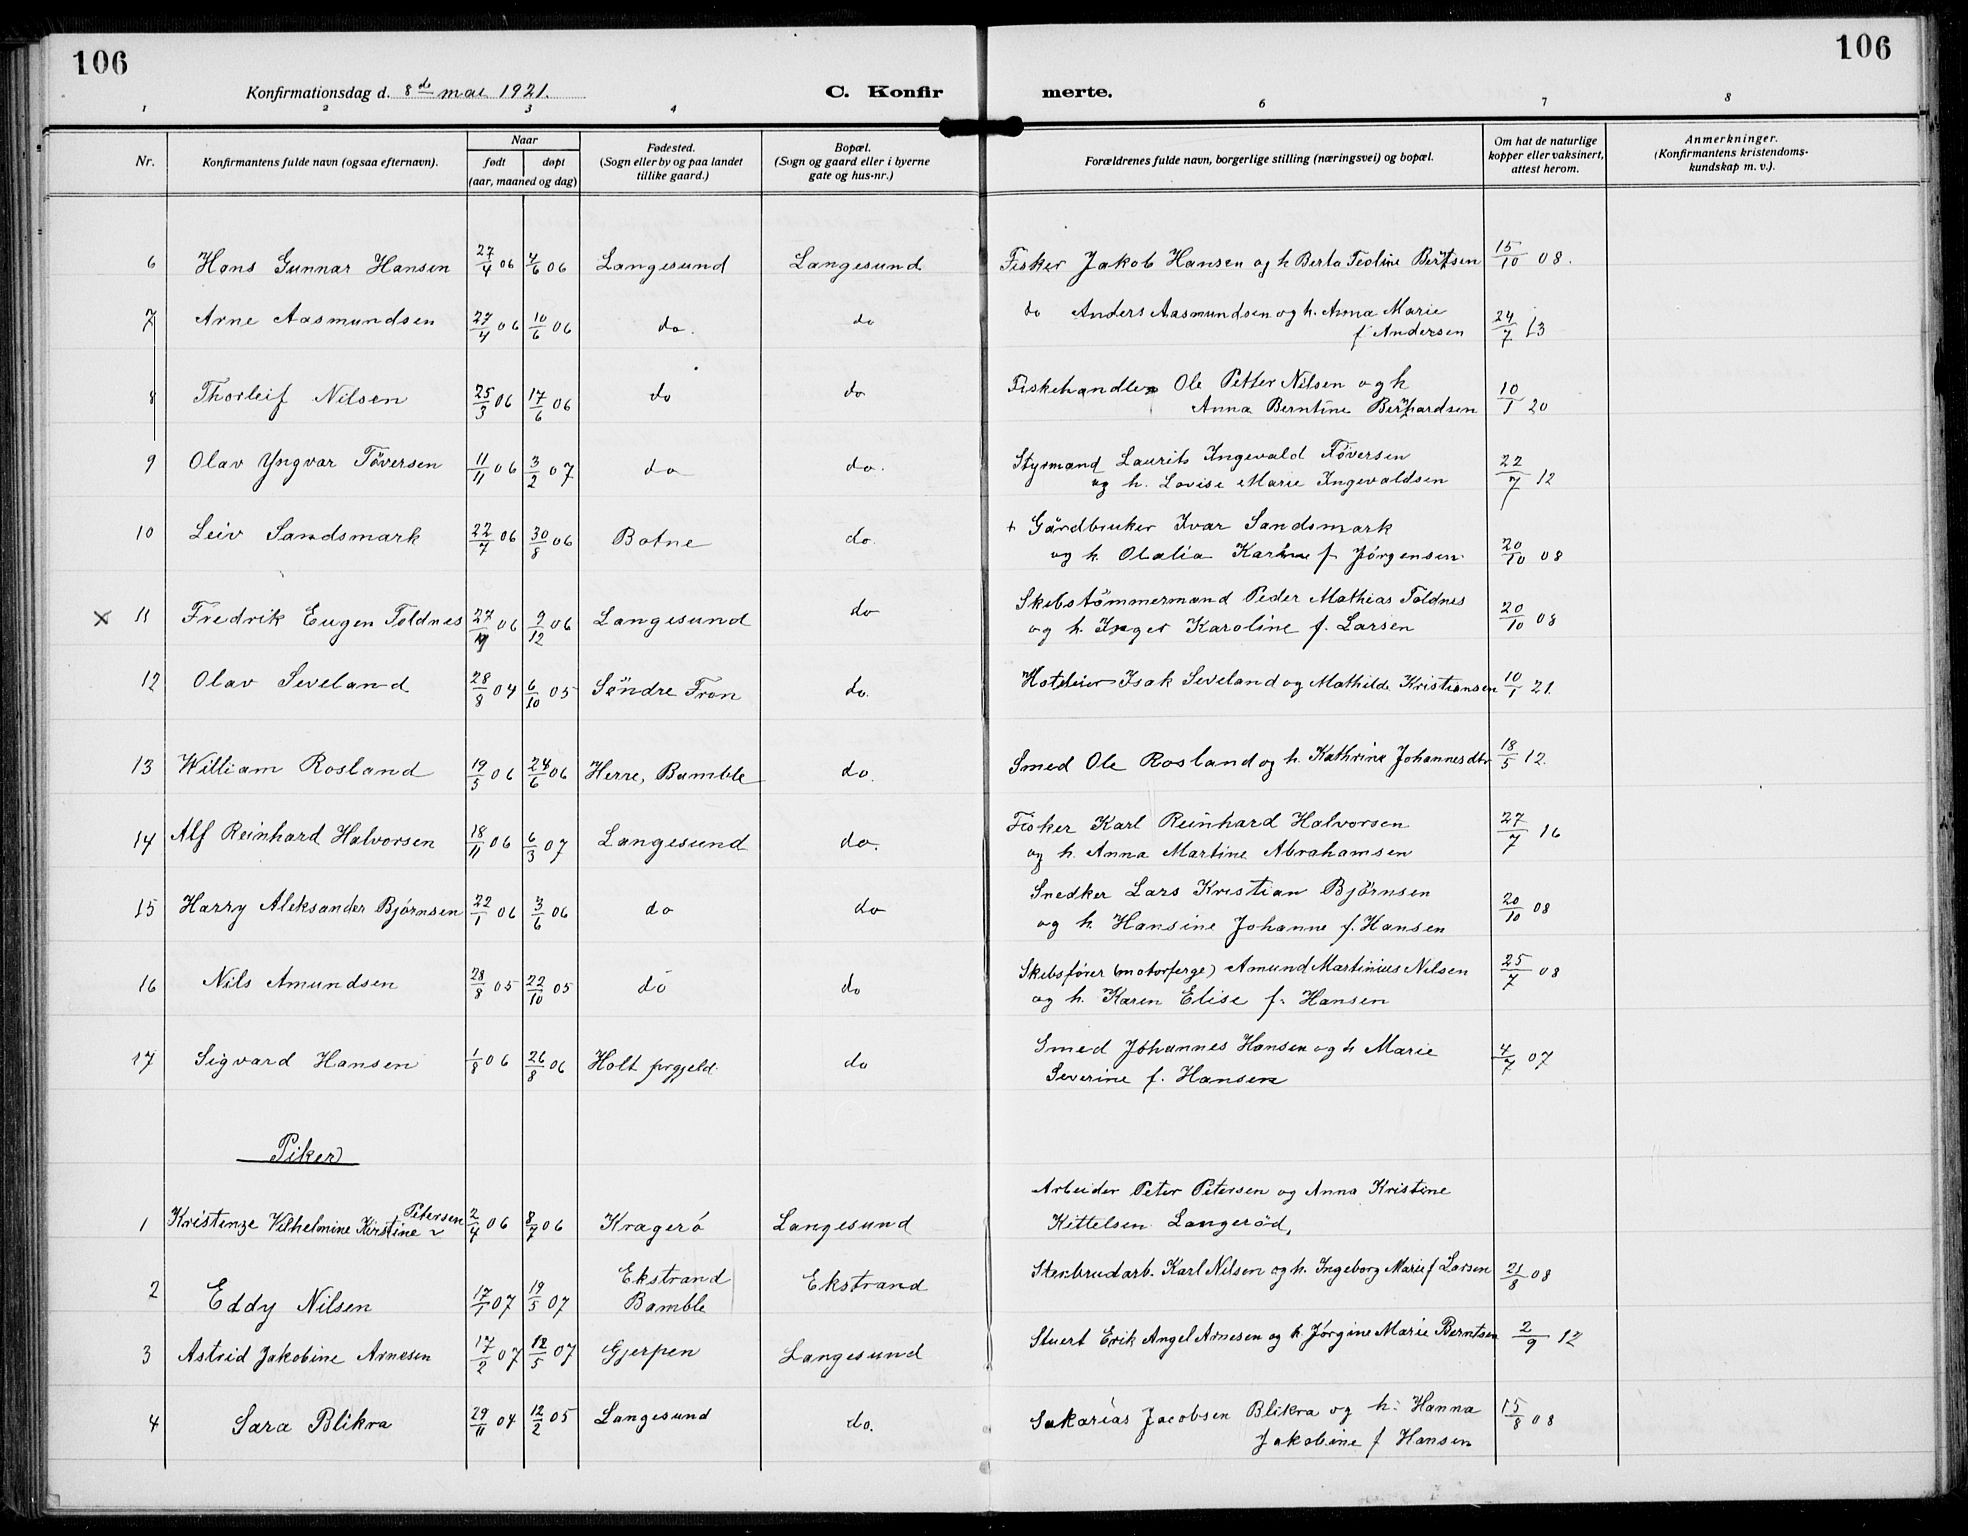 106
106
Konfirmationsdag d. 8de mai 1921.
C. Konfir
merte.
1 2 3 4 6 7 8
Nr.
Konfirmantens fulde navn (ogsaa efternavn).
Naar
født døpt
(aar, maaned og dag)
Fødested.
(Sogn eller by og paa landet
tillike gaard.)
Bopæl.
(Sogn og gaard eller i byerne
gate og hus-nr.)
Forældrenes fulde navn, borgerlige stilling (næringsvei) og bopæl.
Om hat de naturlige
kopper eller vaksinert,
attest herom.
Anmerkninger.
(Konfirmantens kristendoms-
kundskap m. v.).
6 Hans Gunnar Hansen 27/4 06 4/6 06 Langesund Langesund Fisker Jakob Hansen og h Berta Teoline Berntsen 15/10 08.
7 Arne Aasmundsen 27/4 06 10/6 06 do. do do Anders Aasmundsen og h. Anna Marie
f Andersen 24/7 13
8 Thorleif Nilsen 25/3 06 17/6 06 do do Fiskehandler Ole Petter Nilsen og h
Anna Berntine Bernhardsen 10/1 20
9 Olav Yngvar Töversen 11/11 06 3/2 07 do do. Styrmand Laurits Ingevald Töversen
og h. Lovise Marie Ingevaldsen 22/7 12
10 Leiv Sandsmark 22/7 06 30/8 06 Botne do. + Gårdbruker Ivar Sandsmark
og h. Olalia Karine f. Jörgensen. 20/10 08
x 11 Fredrik Eugen Toldnes 27/9 06 9/12 06 Langesund do Skibstömmermand Peder Mathias Toldnes
og h. Inger Karoline f. Larsen 20/10 08
12 Olav Seveland 28/8 04 6/10 05 Söndre Fron do. Hoteleier Isak Seveland og Mathilde Kristiansen 10/1 21.
13 William Rosland 19/5 06 24/6 06 Herre, Bamble do. Smed Ole Rosland og h. Kathrine Johannesdtr 18/5 12.
14 Alf Reinhard Halvorsen 18/11 06 6/3 07 Langesund do. Fisker Karl Reinhard Halvorsen
og h. Anna Martine Abrahamsen 27/7 16
15 Harry Aleksander Bjørnsen 22/1 06 3/6 06 do do Snedker Lars Kristian Bjørnsen
og h. Hansine Johanne f. Hansen 20/10 08
16 Nils Amundsen 28/8 05 22/10 05 do do Skibsfører (motorferge) Amund Martinius Nilsen
og h. Karen Elise f. Hansen 25/7 08
17 Sigvard Hansen 1/8 06 26/8 06 Holt prgjeld. do Smed Johannes Hansen og h Marie
Severine f. Hansen 4/7 07
Piker
Arbeider Peter Petersen og Anna Kristine
1 Kristenze Vilhelmine Kirstine Petersen 2/4 06 8/7 06 Kragerö Langesund Kittelsen Langeröd,
2 Eddy Nilsen 17/1 07 19/5 07 Ekstrand
Bamble Ekstrand Stenbrudarb. Karl Nilsen og h. Ingeborg Marie f Larsen 21/8 08
3 Astrid Jakobine Arnesen 17/2 07 12/5 07 Gjerpen Langesund Stuert Erik Angel Arnesen og h. Jørgine Marie Berntsen 2/9 12
4 Sara Blikra 29/11 04 12/2 05 Langesund do. Sakarias Jacobsen Blikra og h. Hanna
Jakobine f Hansen 15/8 08